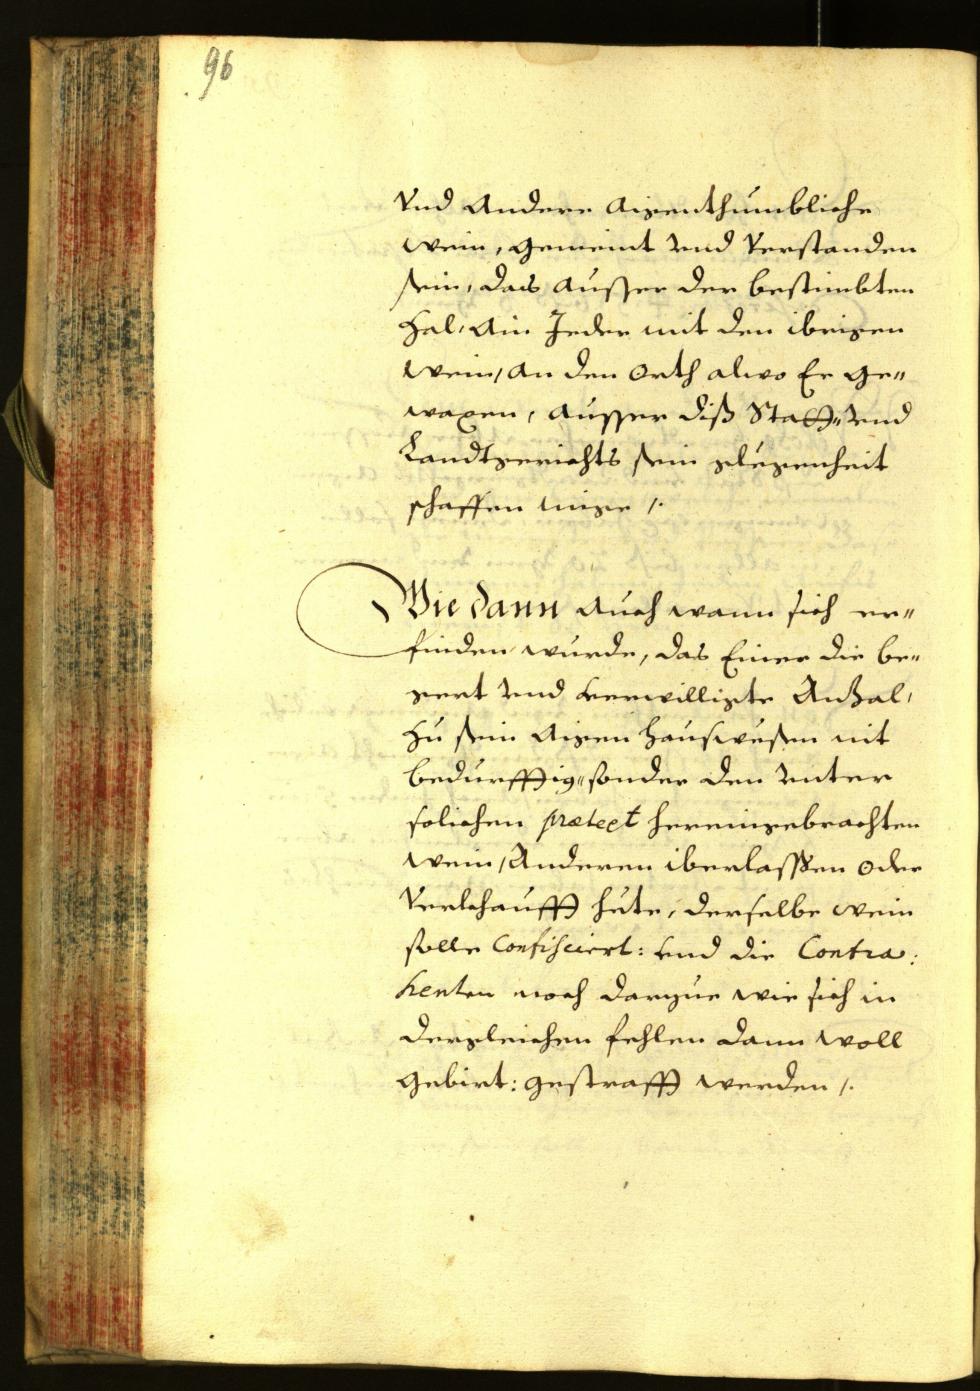 96
Vnd Andere Aigenthumbliche
Wein, gemeint vnd Verstanden
sein, das ausser der bestimbten
Zal, Ain Jeder mit den ibrigen
Wein, an den Orth alwo Er ge„
waxen, ausser diß Statt„ vnd
Landtgerichts sein glegenheit
schaffen mige /.
Wie dann auch wann sich er„
finden wurde, das Einer die be„
gert vnd verwilligte Anzal,
Zu sein aigen Hauswesen nit
bedurfftig„ sonder den vnter
solichen prætext hereingebrachten
Wein, Anderen iberlassen oder
Verkhaufft hete, derselbe Wein
solle Confisciert: vnd die Contra:
henten noch darzue wie sich in
dergleichen fehlen dann woll
gebirt: gestrafft werden /.